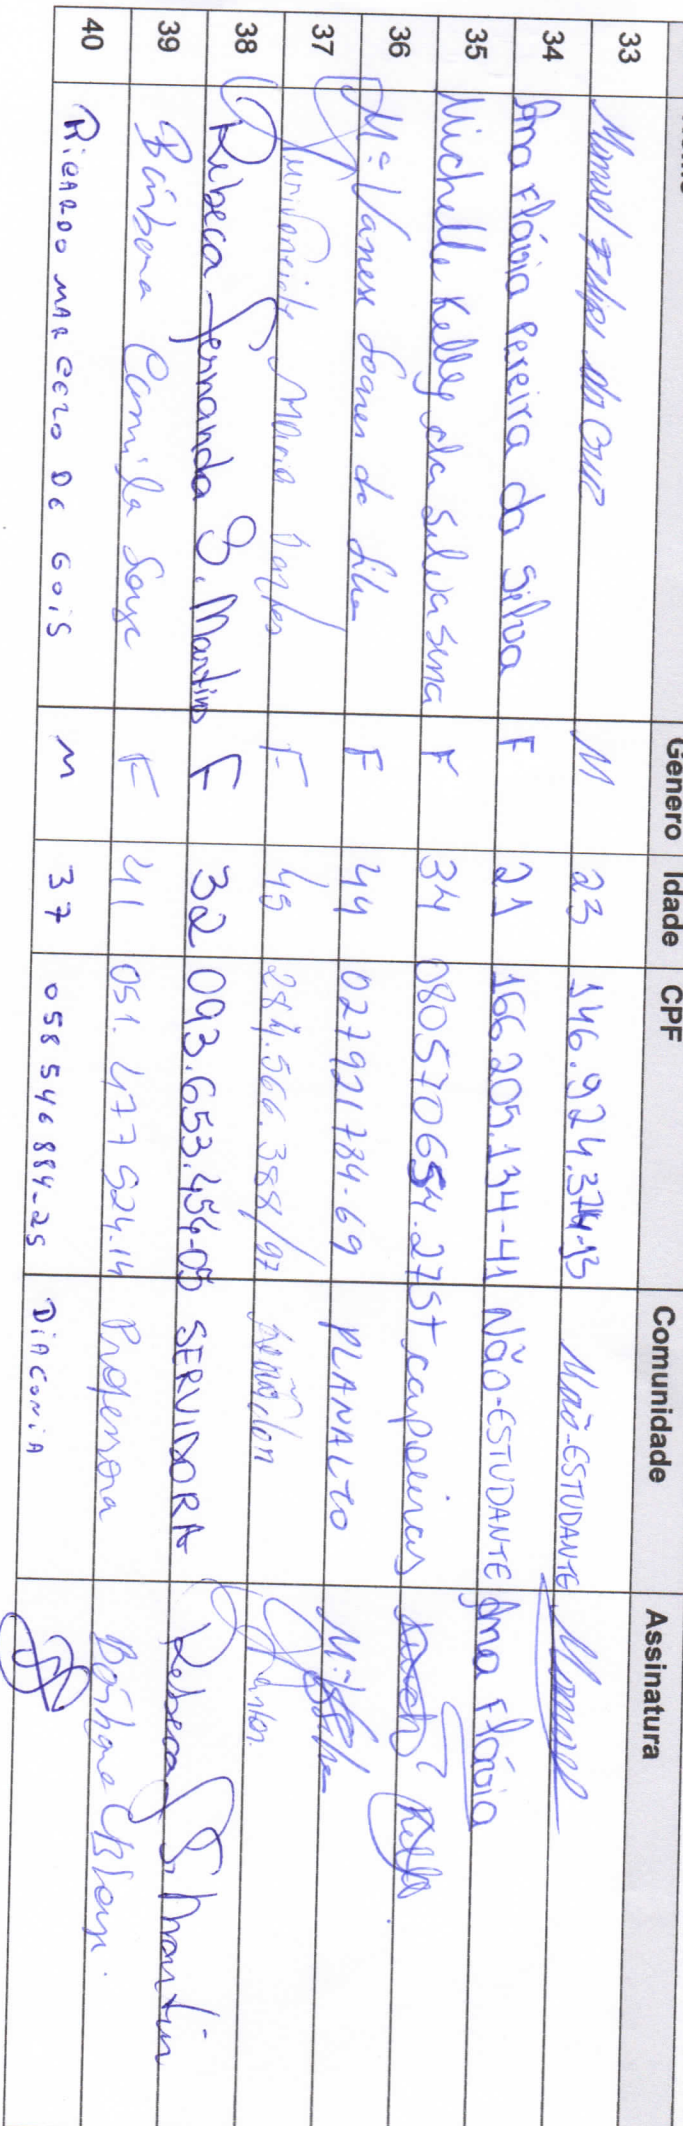 Gênero Idade CPF Comunidade Assinatura
33 Manoel Felipe da Cruz M 23 146.924.374-13 Não-ESTUDANTE Manoel
34 Ana Flávia Pereira da Silva F 21 166.205.134-41 Não-ESTUDANTE Ana Flávia
35 Michelle Kelley da Silva Sena F 34 080570654.27 St capoeiras
36 Mª Vanese Soares da Silva F 44 027921784-69 PLANALTO
37 Maria F 45 284.566.388/97
38 Rebeca Fernanda S. Martins F 32 093.653.454-05 SERVIDORA Rebeca F S. Martin
39 Bárbara Camila F 41 051.477524.14 Professora Bárbara
40 RICARDO MARCELO DE GOIS M 37 058546884-25 DIACONIA